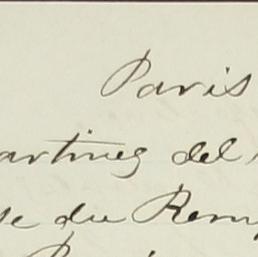 Paris
artinez del
se du Rem